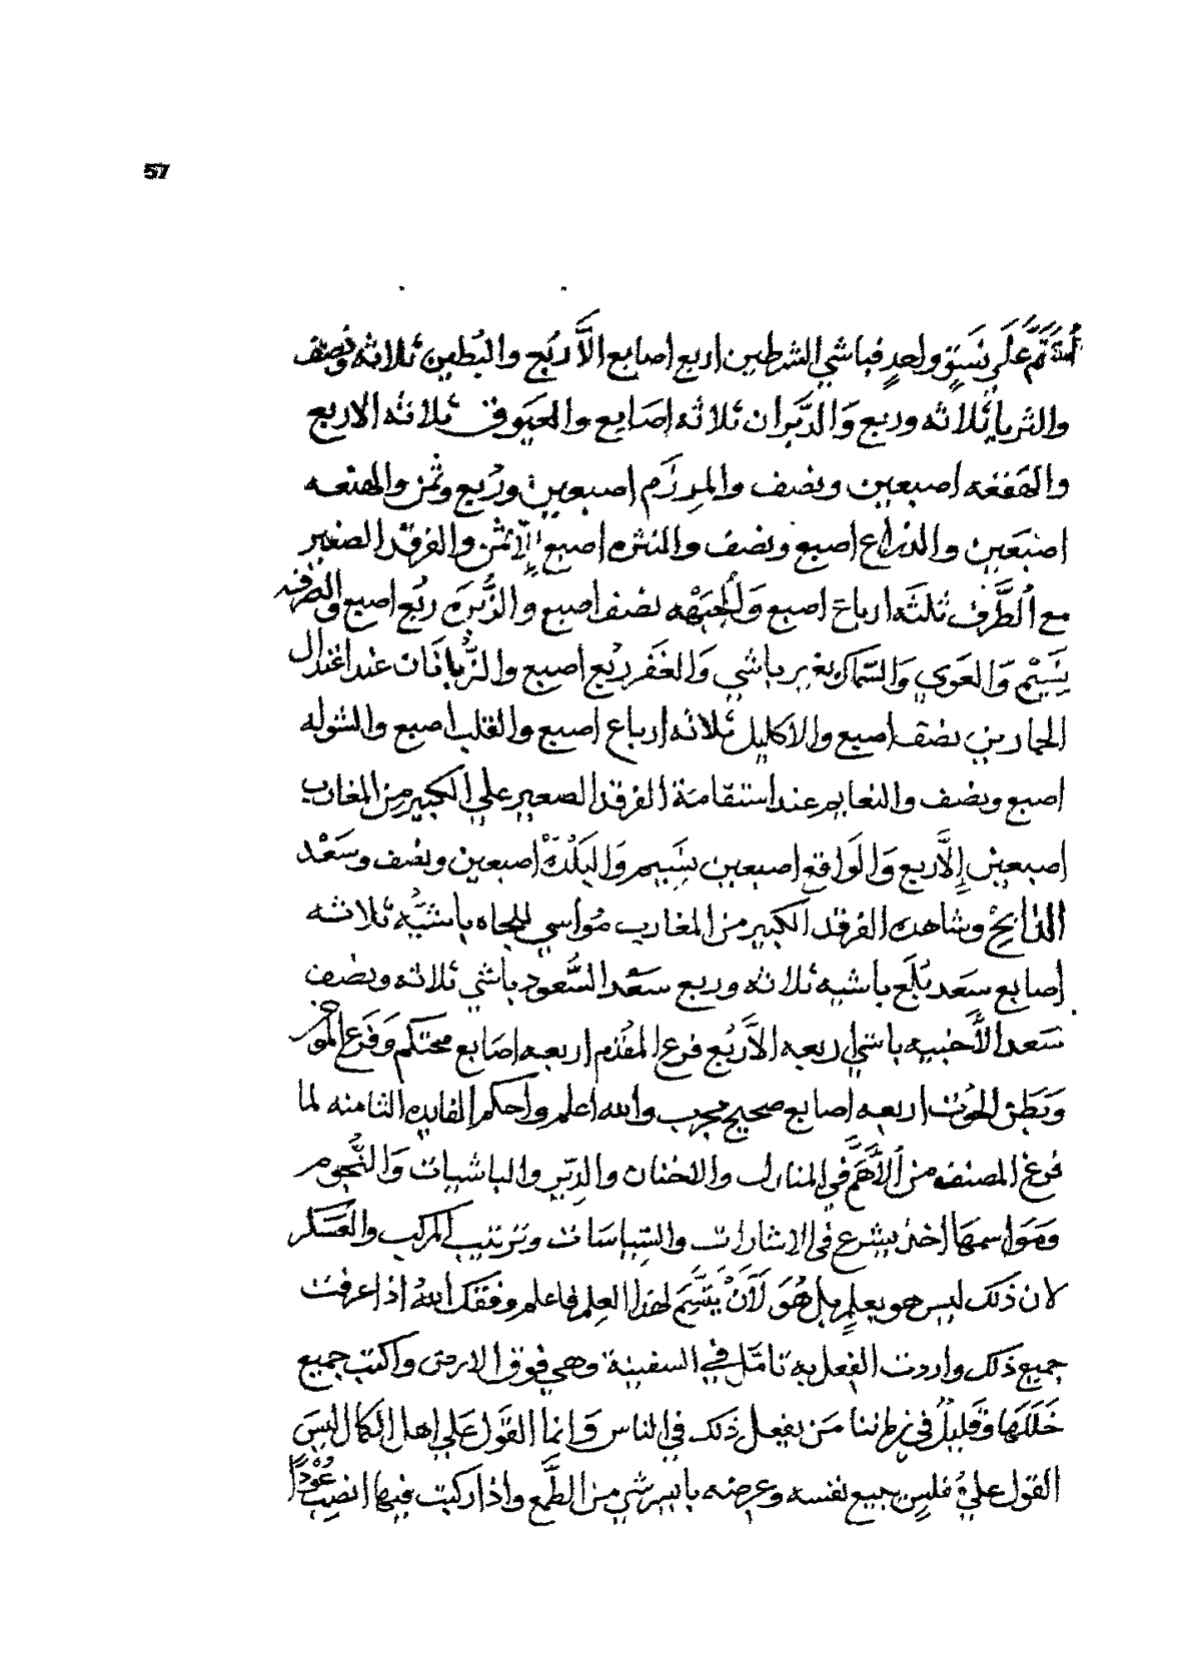 57
ثم على نسق واحد فباشي الشرطين اربع اصابع الأربع والبطين ثلاثه ونصف
والثريا ثلاثه وربع والدبران ثلاثه اصابع والعيوق ثلاثه الاربع
والهقعه اصبعين ونصف والمرزم اصبعين وربع وثمن والهنعه
اصبعين والذراع اصبع ونصف والنثره اصبع إلا ثمن والفرقد الصغير
مع الطرف ثلثه ارباع اصبع والجبهه نصف اصبع والزبره ربع اصبع والصرفه
بسيم والعوي والسماك بغير باشي والغفر ربع اصبع والزبانان عند اعتدال
الحمارين نصف اصبع والاكليل ثلاثه ارباع اصبع والقلب اصبع والشوله
اصبع ونصف والنعايم عند استقامة الفرقد الصغير علي الكبير من المغارب
اصبعين إلأربع والواقع اصبعين بسيم والبلدة اصبعين ونصف وسعد
الذابح وشاهده الفرقد الكبير من المغارب مواسي للجاه باشيه ثلاثه
اصابع سعد بلع باشيه ثلاثه وربع سعد السعود باشي ثلاثه ونصف
سعد الأخبيه باشي اربعه الأربع فرع المقدم اربعه اصابع محتكم وفرع الموخر
وبطن الحوت اربعه اصابع صحيح مجرب والله اعلم واحكم الفايده الثامنه لما
فرغ المصنف من الأهم في المنازل والاخنان والدير والباشيات والنجوم
ومواسمها اخذ يشرع في الاشارات والسياسات وترتيب المركب والعسكر
لان ذلك ليس هو بعلم بل هو لأن يتسم لهذا العلم فاعلم وفقك الله اذا عرفت
جميع ذلك واردت الفعل به تامل في السفينة وهي فوق الارض واكتب جميع
خللها وقليل في زماننا من يفعل ذلك في الناس وانما القول علي اهل الكمال ليس
القول علي من يبيع نفسه وعرضه بايسر شي من الطمع واذا ركبت فيها انصب عودا